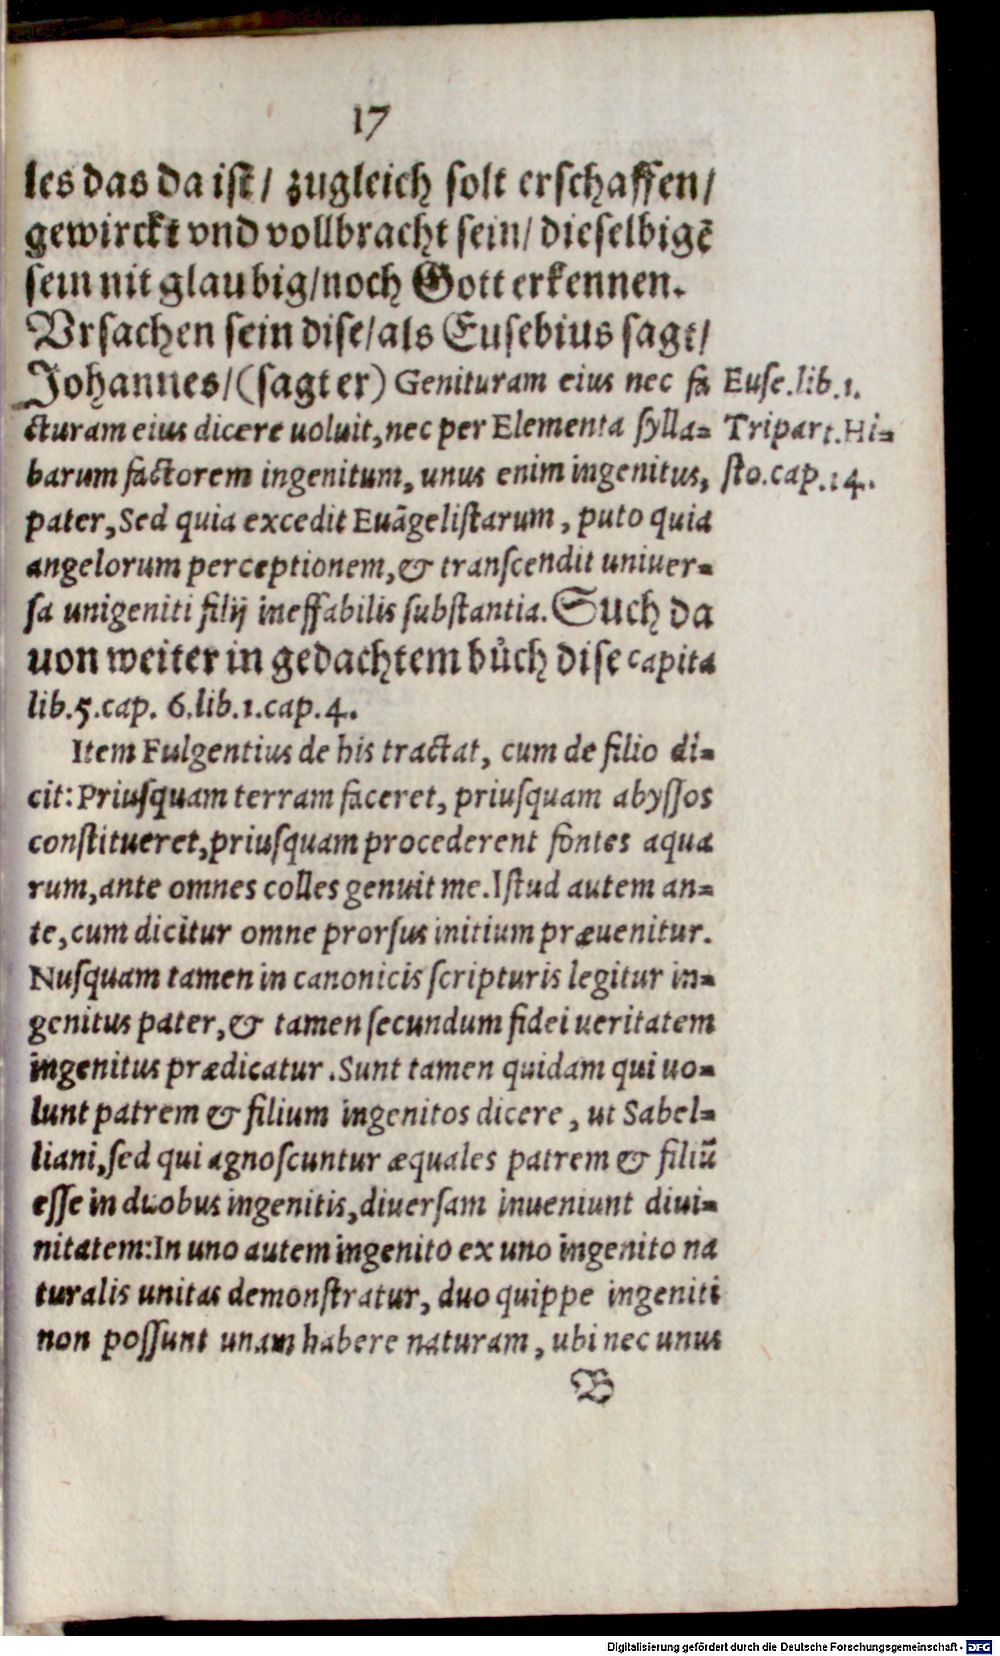 17
les das da ist/ zugleich solt erschaffen/
gewirckt vnd vollbracht sein/ dieselbigẽ
sein nit glaubig/noch Gott erkennen.
Vrsachen sein dise/als Eusebius sagt/
Johannes/(sagt er) Genituram eius nec fa
cturam eius dicere uoluit, nec per Elementa sylla=
barum factorem ingenitum, unus enim ingenitus,
pater, Sed quia excedit Euãgelistarum, puto quia
angelorum perceptionem, & transcendit uniuer=
sa unigeniti filij ineffabilis substantia. Such da
uon weiter in gedachtem bůch dise capita
lib.5.cap. 6.lib.1.cap.4.
Euse.lib.1.
Tripart.Hi=
sto.cap.14.
Item Fulgentius de his tractat, cum de filio di=
cit: Priusquam terram faceret, priusquam abyssos
constitueret, priusquam procederent fontes aqua
rum, ante omnes colles genuit me. Istud autem an=
te, cum dicitur omne prorsus initium præuenitur.
Nusquam tamen in canonicis scripturis legitur in=
genitus pater, & tamen secundum fidei ueritatem
ingenitus prædicatur. Sunt tamen quidam qui uo=
lunt patrem & filium ingenitos dicere, ut Sabel=
liani, sed qui agnoscuntur æquales patrem & filiũ
esse in duobus ingenitis, diuersam inueniunt diui=
nitatem: In uno autem ingenito ex uno ingenito na
turalis unitas demonstratur, duo quippe ingeniti
non possunt unam habere naturam, ubi nec unus
B
Digitalisierung gefördert durch die Deutsche Forschungsgemeinschaft - DFG